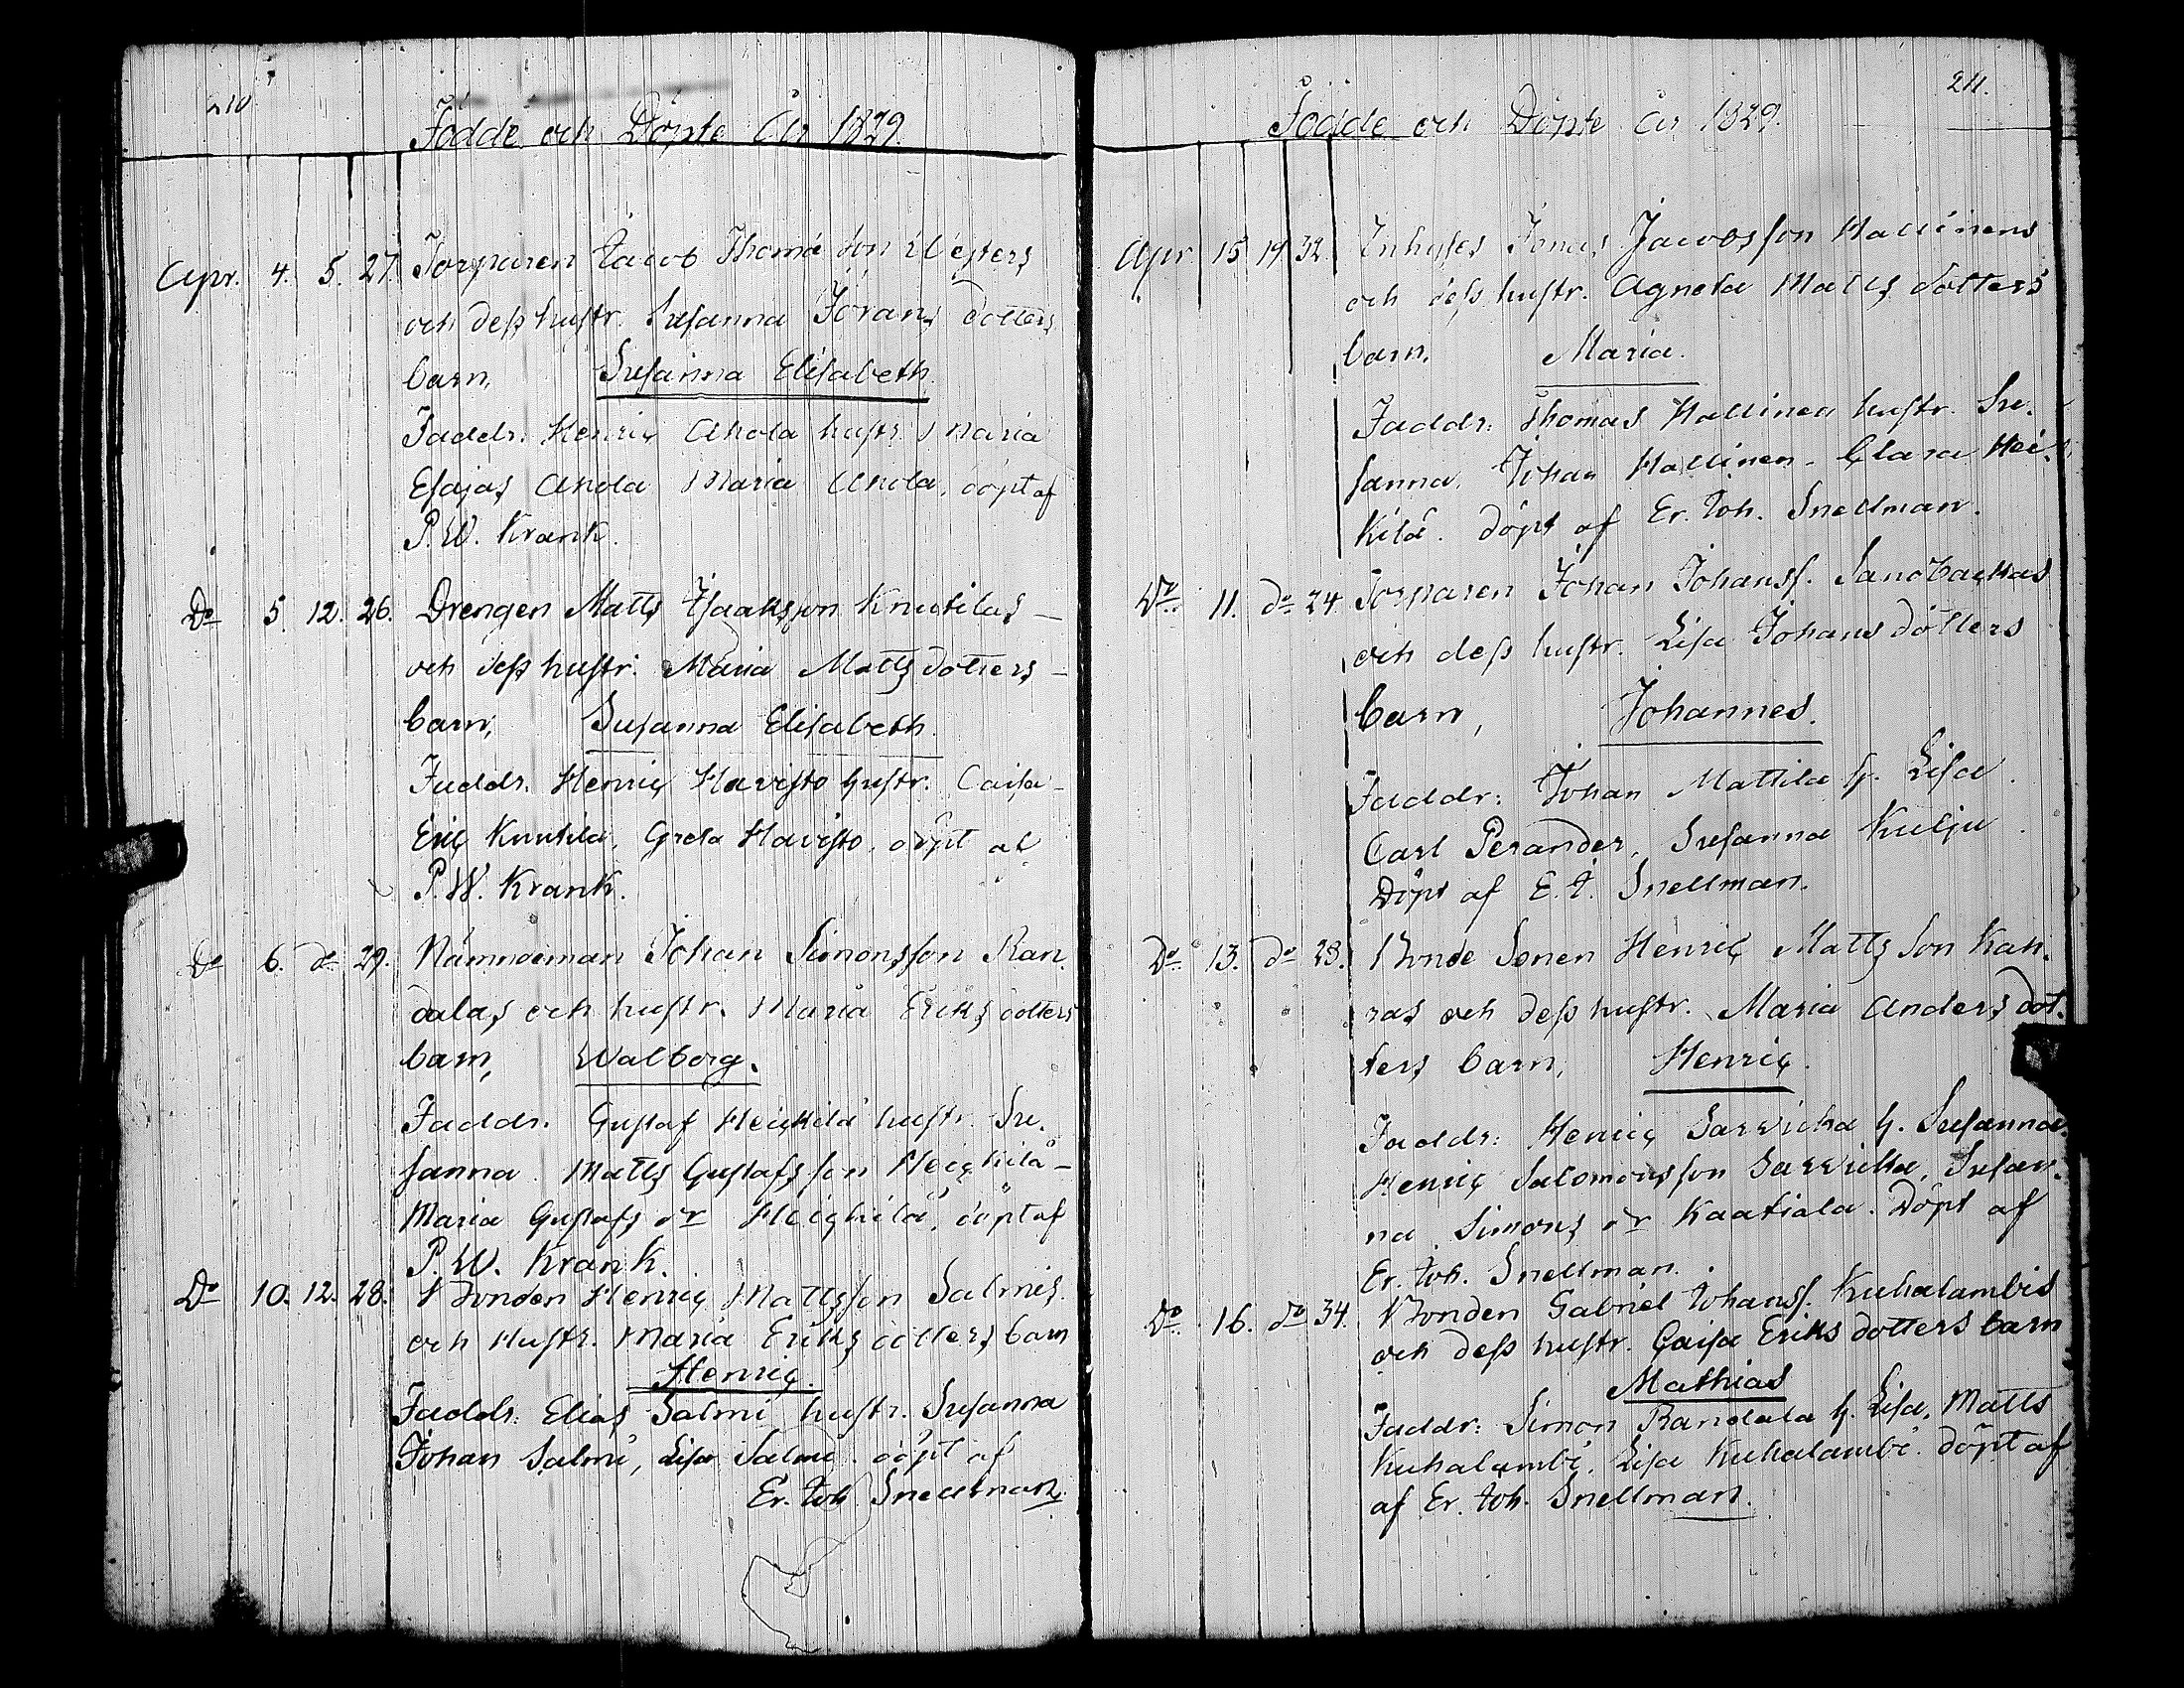 210
Födde och Döpte År 1829.
Apr. 4. 5. 27. Torparen Jacob Thomæ son Westers
och dess hustr. Susanna Jörans dotters
barn, Susanna Elisabeth.
Faddr. Henric Ahola hustr. Maria
Esajas Ahola Maria Ahola, döpt af
P. W. Krank.
Do 5. 12. 26. Drengen Matts Isaksson Knutilas
och dess hustr. Maria Matts dotters
barn, Susanna Elisabeth.
Faddr. Henric Havisto hustr. Caisa
Eric Knutila, Greta Havisto, döpt af
P. W. Krank.
Do 6. do 29. Nämndeman Johan Simonsson Ran-
dalas och hustr. Maria Eriks dotters
barn, Walborg.
Faddr. Gustaf Heickilä hustr. Su-
sanna Matts Gustafsson Heickilä
Maria Gustafs dr Heickilä, döpt af
P. W. Krank.
Do 10. 12. 28. Bonden Henric Mattsson Salmis
och Hustr. Maria Eriks dotters barn
Henric.
Faddr. Elias Salmi hustr. Susanna
Johan Salmi, Lisa Salmi. döpt af
Er. Joh. Snellman.
211.
Födde och Döpte År 1829.
Apr 15 19 32. Inhyses Jonas Jacobsson Hallinens
och dess hustr. Agneta Matts dotters
barn, Maria.
Faddr: Thomas Hallinen hustr. Su-
sanna, Johan Hallinen. Clara Hei-
kilä. döpt af Er. Joh. Snellman.
Do 11. do 24. Torparen Johan Johanss. Sandbackas
och dess hustr. Lisa Johans dotters
barn, Johannes.
Faddr: Johan Mattila h. Lisa.
Carl Perander, Susanna Kulju.
Döpt af E. J. Snellman.
Do 13. do 23. Bonde Sonen Henric Matts son Kan-
ras och dess hustr. Maria Anders dot-
ters barn, Henric.
Faddr: Henric Sarvicka h. Susanna
Henric Salomonsson Sarvicka, Susan-
na Simons dr Kaatiala. Döpt af
Er. Joh. Snellman.
Do 16. do 34. Bonden Gabriel Johanss. Kuhalambis
och dess hustr. Caisa Eriks dotters barn
Mathias
Faddr: Simon Randala h. Lisa, Matts
Kuhalambi, Lisa Kuhalambi. döpt af
af Er. Joh. Snellman.